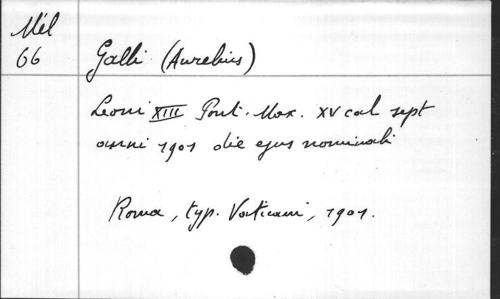 Mél
66
Galli (Aurelius)
Leoni XIII Pont. Max. XV cal sept
anni 1901 die ejus nominali
Roma, typ. Vaticani, 1901.